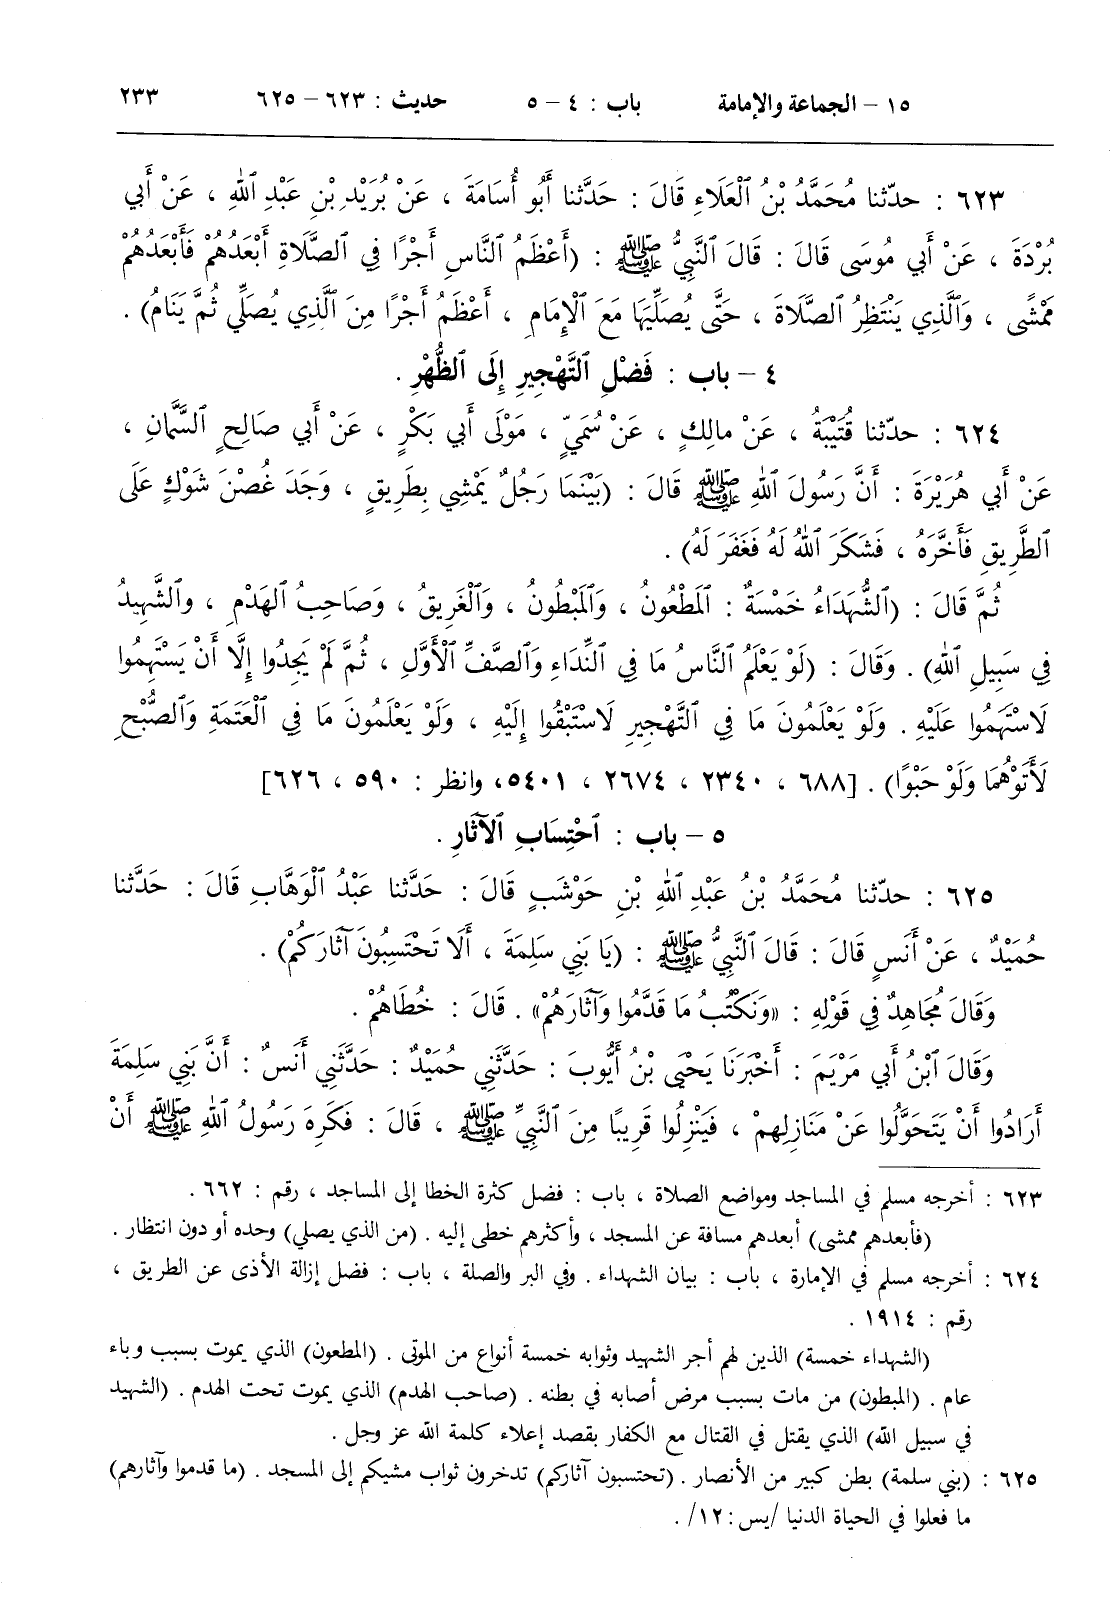 ١٥ – الجماعة والإمامة باب : ٤ – ٥ حديث : ٦٢٣ – ٦٢٥ ٢٣٣
٦٢٣ : حدّثنا مُحَمَّدُ بْنُ ٱلْعَلَاءِ قَالَ : حَدَّثَنا أَبُو أُسَامَةَ ، عَنْ بُرَيْدِ بْنِ عَبْدِ ٱللهِ ، عَنْ أَبِي
بُرْدَةَ ، عَنْ أَبِي مُوسَى قَالَ : قَالَ ٱلنَّبِيُّ ﷺ : (أَعْظَمُ ٱلنَّاسِ أَجْرًا فِي ٱلصَّلَاةِ أَبْعَدُهُمْ فَأَبْعَدُهُمْ
مَمْشًى ، وَٱلَّذِي يَنْتَظِرُ ٱلصَّلَاةَ ، حَتَّى يُصَلِّيَهَا مَعَ ٱلْإِمَامِ ، أَعْظَمُ أَجْرًا مِنَ ٱلَّذِي يُصَلِّي ثُمَّ يَنَامُ) .
٤ – باب : فَضْلِ ٱلتَّهْجِيرِ إِلَى ٱلظُّهْرِ .
٦٢٤ : حدّثنا قُتَيْبَةُ ، عَنْ مالِكٍ ، عَنْ سُمَيٍّ ، مَوْلَى أَبِي بَكْرٍ ، عَنْ أَبِي صَالِحٍ ٱلسَّمَّانِ ،
عَنْ أَبِي هُرَيْرَةَ : أَنَّ رَسُولَ ٱللهِ ﷺ قَالَ : (بَيْنَمَا رَجُلٌ يَمْشِي بِطَرِيقٍ ، وَجَدَ غُصْنَ شَوْكٍ عَلَى
ٱلطَّرِيقِ فَأَخَّرَهُ ، فَشَكَرَ ٱللهُ لَهُ فَغَفَرَ لَهُ) .
ثُمَّ قَالَ : (ٱلشُّهَدَاءُ خَمْسَةٌ : ٱلمَطْعُونُ ، وَٱلمَبْطُونُ ، وَٱلْغَرِيقُ ، وَصَاحِبُ ٱلهَدْمِ ، وٱلشَّهِيدُ
فِي سَبِيلِ ٱللهِ) . وَقَالَ : (لَوْ يَعْلَمُ ٱلنَّاسُ مَا فِي ٱلنِّدَاءِ وَٱلصَّفِّ ٱلْأَوَّلِ ، ثُمَّ لَمْ يَجِدُوا إِلَّا أَنْ يَسْتَهِمُوا
لَاسْتَهَمُوا عَلَيْهِ . وَلَوْ يَعْلَمُونَ مَا فِي ٱلتَّهْجِيرِ لَاسْتَبَقُوا إِلَيْهِ ، وَلَوْ يَعْلَمُونَ مَا فِي ٱلْعَتَمَةِ وَٱلصُّبْحِ
لَأَتَوْهُمَا وَلَوْ حَبْوًا) . [٦٨٨ ، ٢٣٤٠ ، ٢٦٧٤ ، ٥٤٠١، وانظر : ٥٩٠ ، ٦٢٦]
٥ – باب : ٱحْتِسَابِ ٱلْآثَارِ .
٦٢٥ : حدّثنا مُحَمَّدُ بْنُ عَبْدِ ٱللهِ بْنِ حَوْشَبٍ قَالَ : حَدَّثَنا عَبْدُ ٱلْوَهَّابِ قَالَ : حَدَّثَنا
حُمَيْدٌ ، عَنْ أَنَسٍ قَالَ : قَالَ ٱلنَّبِيُّ ﷺ : (يَا بَنِي سَلِمَةَ ، أَلَا تَحْتَسِبُونَ آثَارَكُمْ) .
وَقَالَ مُجَاهِدٌ فِي قَوْلِهِ : «وَنَكْتُبُ مَا قَدَّمُوا وَآثَارَهُمْ» . قَالَ : خُطَاهُمْ .
وَقَالَ ٱبْنُ أَبِي مَرْيَمَ : أَخْبَرَنَا يَحْيَى بْنُ أَيُّوبَ : حَدَّثَنِي حُمَيْدٌ : حَدَّثَنِي أَنَسٌ : أَنَّ بَنِي سَلِمَةَ
أَرَادُوا أَنْ يَتَحَوَّلُوا عَنْ مَنَازِلِهِمْ ، فَيَنْزِلُوا قَرِيبًا مِنَ ٱلنَّبِيِّ ﷺ ، قَالَ : فَكَرِهَ رَسُولُ ٱللهِ ﷺ أَنْ
٦٢٣ : أخرجه مسلم في المساجد ومواضع الصلاة ، باب : فضل كثرة الخطا إلى المساجد ، رقم : ٦٦٢ .
(فأبعدهم ممشى) أبعدهم مسافة عن المسجد ، وأكثرهم خطى إليه . (من الذي يصلي) وحده أو دون انتظار .
٦٢٤ : أخرجه مسلم في الإمارة ، باب : بيان الشهداء . وفي البر والصلة ، باب : فضل إزالة الأذى عن الطريق ،
رقم : ١٩١٤ .
(الشهداء خمسة) الذين لهم أجر الشهيد وثوابه خمسة أنواع من الموتى . (المطعون) الذي يموت بسبب وباء
عام . (المبطون) من مات بسبب مرض أصابه في بطنه . (صاحب الهدم) الذي يموت تحت الهدم . (الشهيد
في سبيل الله) الذي يقتل في القتال مع الكفار بقصد إعلاء كلمة الله عز وجل .
٦٢٥ : (بني سلمة) بطن كبير من الأنصار . (تحتسبون آثاركم) تدخرون ثواب مشيكم إلى المسجد . (ما قدموا وآثارهم)
ما فعلوا في الحياة الدنيا /يس: ١٢/ .